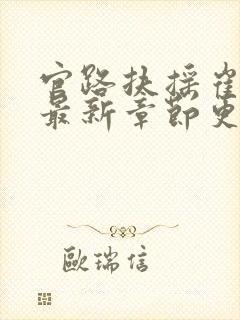 官路扶摇崔
最新章节更
歐瑞信